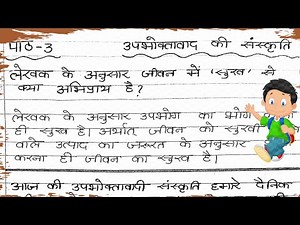 पाठ-3 उपभोक्तावाद की संस्कृति
लेखक के अनुसार जीवन में 'सुख' से
क्या अभिप्राय है?
लेखक के अनुसार उपभोग का भोग
ही सुख है। अर्थात् जीवन को सुखी
वाले उत्पाद का जरूरत के अनुसार
करना ही जीवन का सुख है।
आज की उपभोक्तावादी संस्कृति हमारे दैनिक